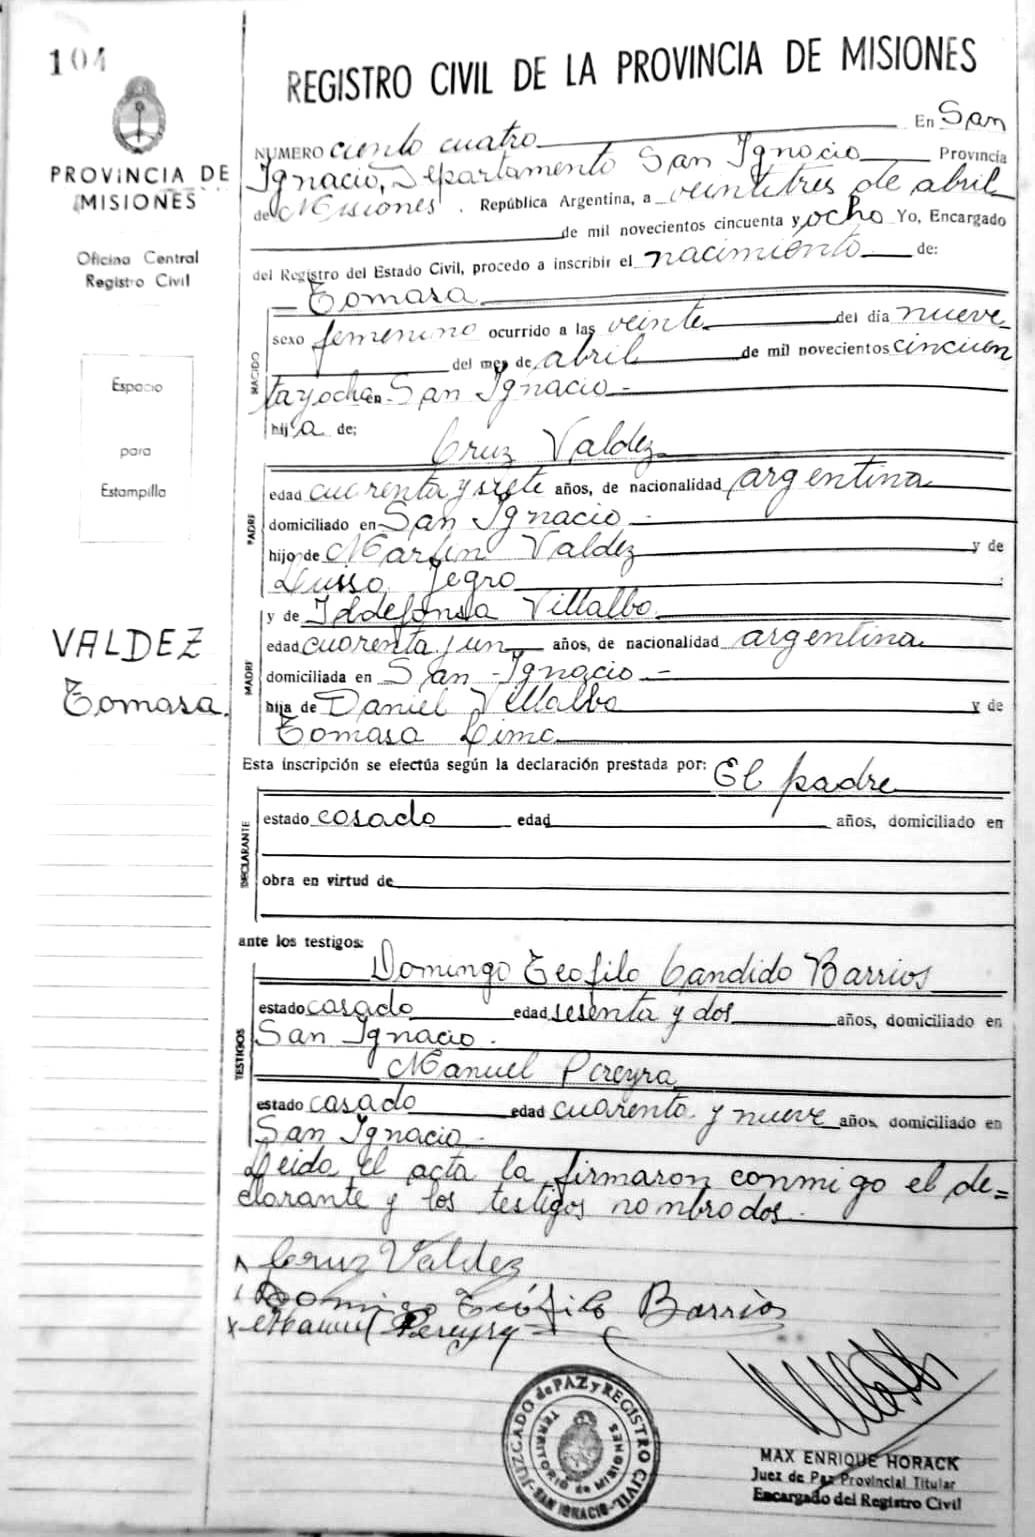 104
PROVINCIA DE
MISIONES
Oficina Central
Registro Civil
Espacio
para
Estampilla
VALDEZ
Tomasa.
REGISTRO CIVIL DE LA PROVINCIA DE MISIONES
NUMERO ciento cuatro En San
Ignacio, Departamento San Ignacio Provincia
de Misiones. República Argentina, a veintitres de abril
de mil novecientos cincuenta y ocho Yo, Encargado
del Registro del Estado Civil, procedo a inscribir el nacimiento de:
Tomasa
NACIDO
sexo femenino ocurrido a las veinte del día nueve
del mes de abril de mil novecientos cincuen
tayocho en San Ignacio
hija de;
Cruz Valdez
PADRE
edad cuarenta y siete años, de nacionalidad argentina
domiciliado en San Ignacio
hijo de Martin Valdez y de
y de Ildefonsa Villalba
MADRE
edad cuarenta y un años, de nacionalidad argentina
domiciliada en San Ignacio
hija de Daniel Villalba y de
Tomasa
Esta inscripción se efectúa según la declaración prestada por: El padre
DECLARANTE
estado casado edad años, domiciliado en
obra en virtud de
ante los testigos:
Domingo Teofilo Candido Barrios
TESTIGOS
estado casado edad sesenta y dos años, domiciliado en
San Ignacio.
Manuel Pereyra
estado casado edad cuarenta y nueve años, domiciliado en
San Ignacio
Leida el acta la firmaron conmigo el de=
clarante y los testigos nombrados.
Cruz Valdez
Domingo Teófilo Barrios
Manuel Pereyra
JUZGADO de PAZ y REGISTRO CIVIL
TERRITORIO de MISIONES
SAN IGNACIO
MAX ENRIQUE HORACK
Juez de Paz Provincial Titular
Encargado del Registro Civil